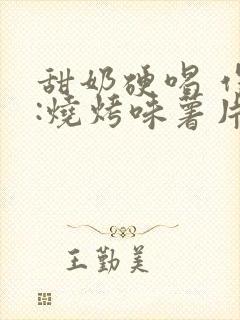 甜奶硬唱
:燒烤味薯片
王勤美